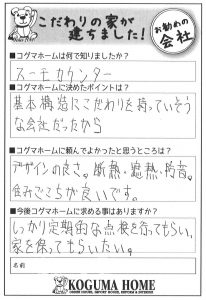 こだわりの家が
建ちました!
お勧めの
会社
■コグマホームは何で知りましたか?
スーモカウンター
■コグマホームに決めたポイントは?
基本構造にこだわりを持っていそう
な会社だったから
■コグマホームに頼んでよかったと思うところは?
デザインの良さ。断熱・遮熱・防音。
住みごこちが良いです。
■今後コグマホームに求める事はありますか?
しっかり定期的な点検を行ってもらい、
家を保ってもらいたい。
名前
KOGUMA HOME
ORDER HOUSE, IMPORT HOUSE, REFORM & INTERIOR